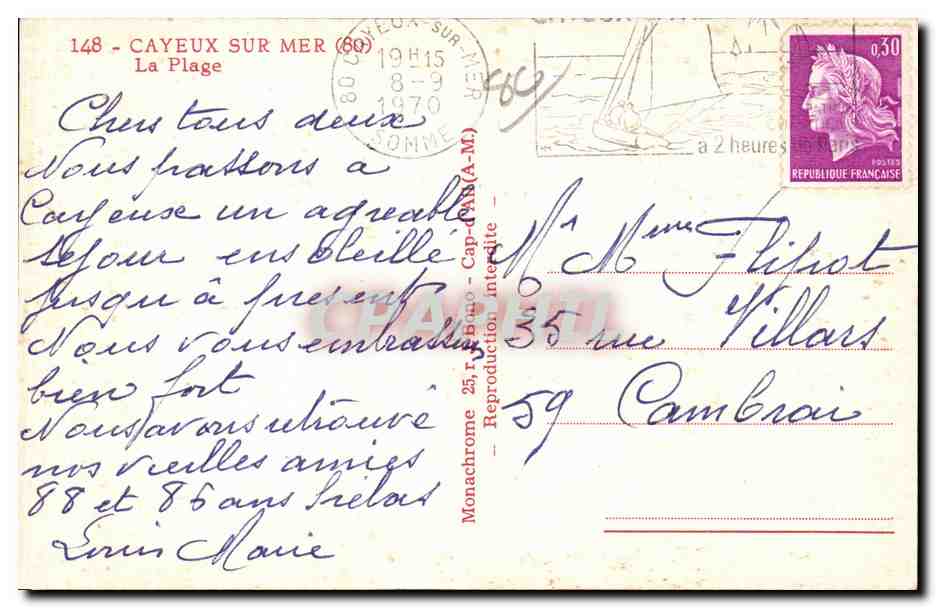 148 - CAYEUX SUR MER (80)
La Plage
80 CAYEUX-SUR-MER
19H15
8-9
1970
SOMME
à 2 heures de Paris
0,30
POSTES
REPUBLIQUE FRANÇAISE
Chers tous deux
Nous passons à
Cayeux un agreable
séjour ensoleillé
jusqu'à présent
Nous vous embrassons
bien fort
Nous avons retrouvé
nos vieilles amies
88 et 86 ans hélas
Louis Marie
Monachrome 25, r. J. Bono - Cap-d'Ail (A.-M.)
— Reproduction interdite —
CPAPHIL
Mr Mme Flipot
35 rue Villars
59 Cambrai